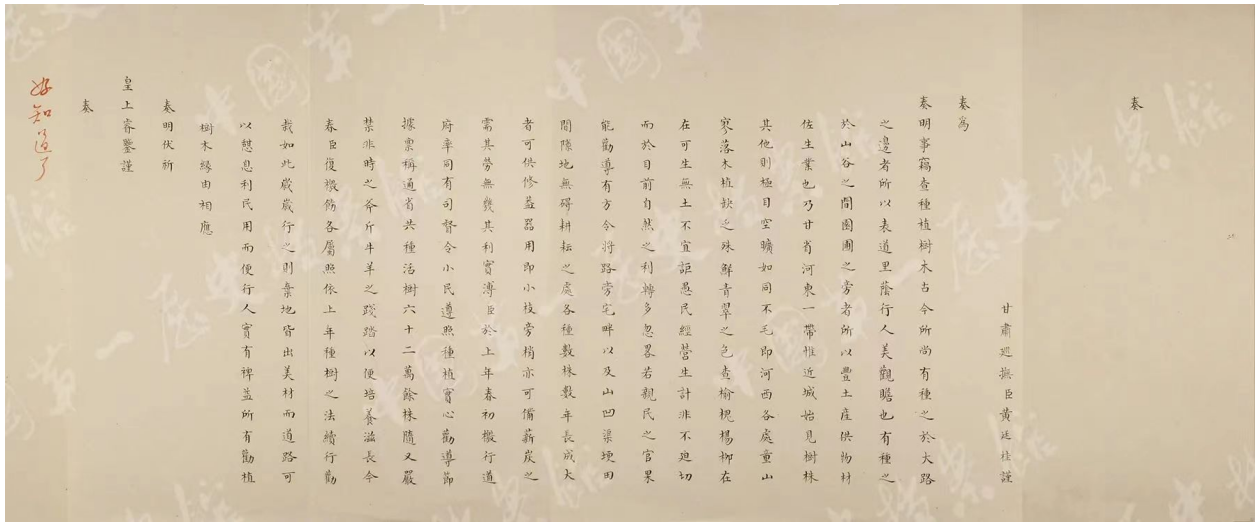 奏
甘肅巡撫臣黃廷桂謹
奏為
奏明事竊查種植樹木古今所尚有種之於大路
之邊者所以表道里蔭行人美觀瞻也有種之
於山谷之間園圃之旁者所以豐土產供物材
佐生業也乃甘省河東一帶惟近城始見樹株
其他則極目空曠如同不毛即河西各處童山
寥落木植缺乏殊鮮青翠之色查榆槐楊柳在
在可生無土不宜詎愚民經營生計非不迫切
而於目前自然之利轉多忽畧若親民之官果
能勸導有方令將路旁宅畔以及山凹渠埂田
間隙地無碍耕耘之處各種數株數年長成大
者可供修葢器用即小枝旁梢亦可備薪炭之
需其勞無幾其利實溥臣於上年春初檄行道
府率司有司督令小民遵照種植實心勸導節
據禀稱通省共種活樹六十二萬餘株隨又嚴
禁非時之斧斤牛羊之踐踏以便培養滋長今
春臣復檄飭各屬照依上年種樹之法續行勸
栽如此歲歲行之則棄地皆出美材而道路可
以憩息利民用而便行人實有裨益所有勸植
樹木緣由相應
奏明伏祈
皇上睿鑒謹
奏
好知道了
中國第一歷史檔案館